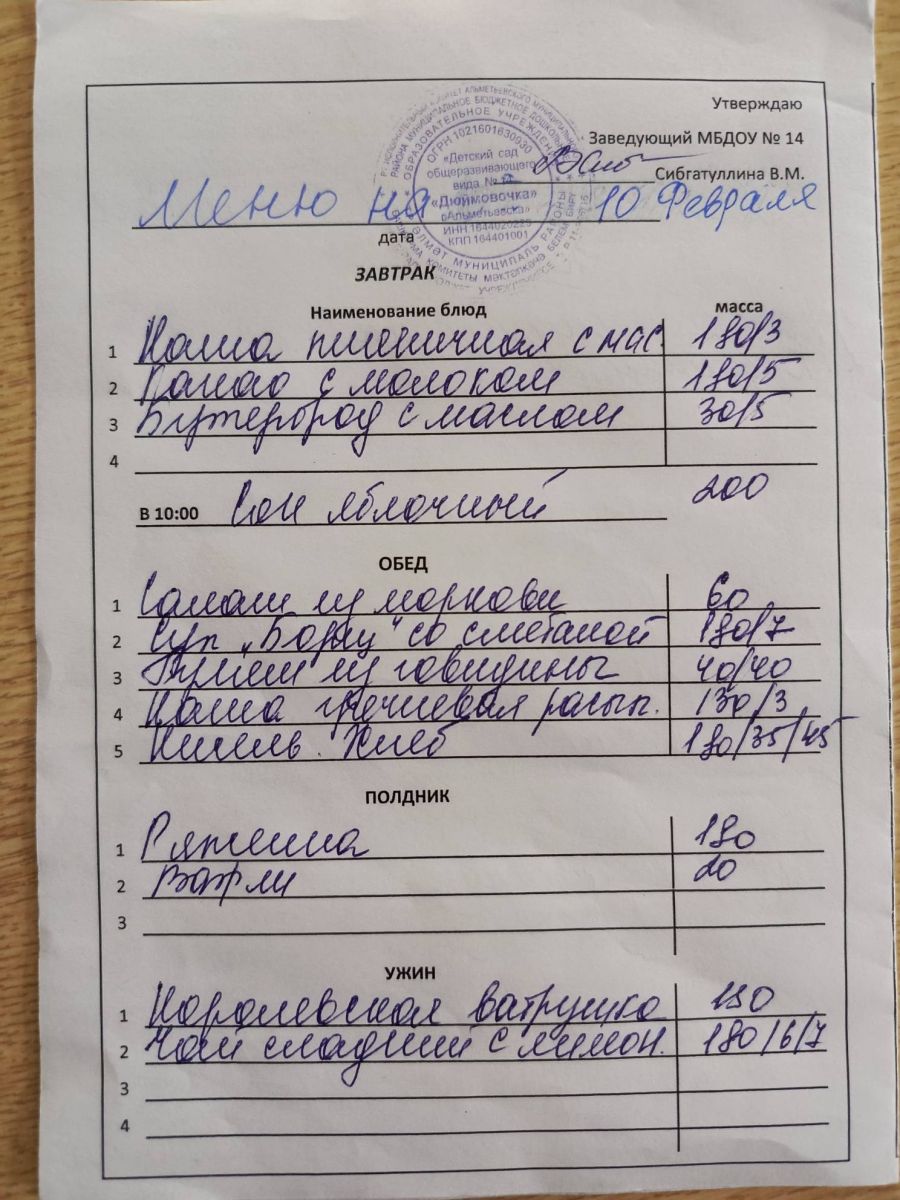 Утверждаю
Заведующий МБДОУ № 14
Сибгатуллина В.М.
ОГРН 1021601630930
«Детский сад
общеразвивающего
вида № 14
«Дюймовочка»
г.Альметьевска»
ИНН 1644020225
КПП 164401001
Меню на 10 Февраля
дата
ЗАВТРАК
Наименование блюд масса
1 Каша пшеничная с мас. 180/3
2 Какао с молоком 180/5
3 Бутерброд с маслом 30/5
4
В 10:00 Сок яблочный 200
ОБЕД
1 Салат из моркови 60
2 Суп „Борщ“ со сметаной 180/7
3 Гуляш из говядины 40/40
4 Каша гречневая рассып. 130/3
5 Кисель. Хлеб 180/35/45
ПОЛДНИК
1 Ряженка 180
2 Вафли 20
3
УЖИН
1 Королевская ватрушка 150
2 Чай сладкий с лимон. 180/6/7
3
4